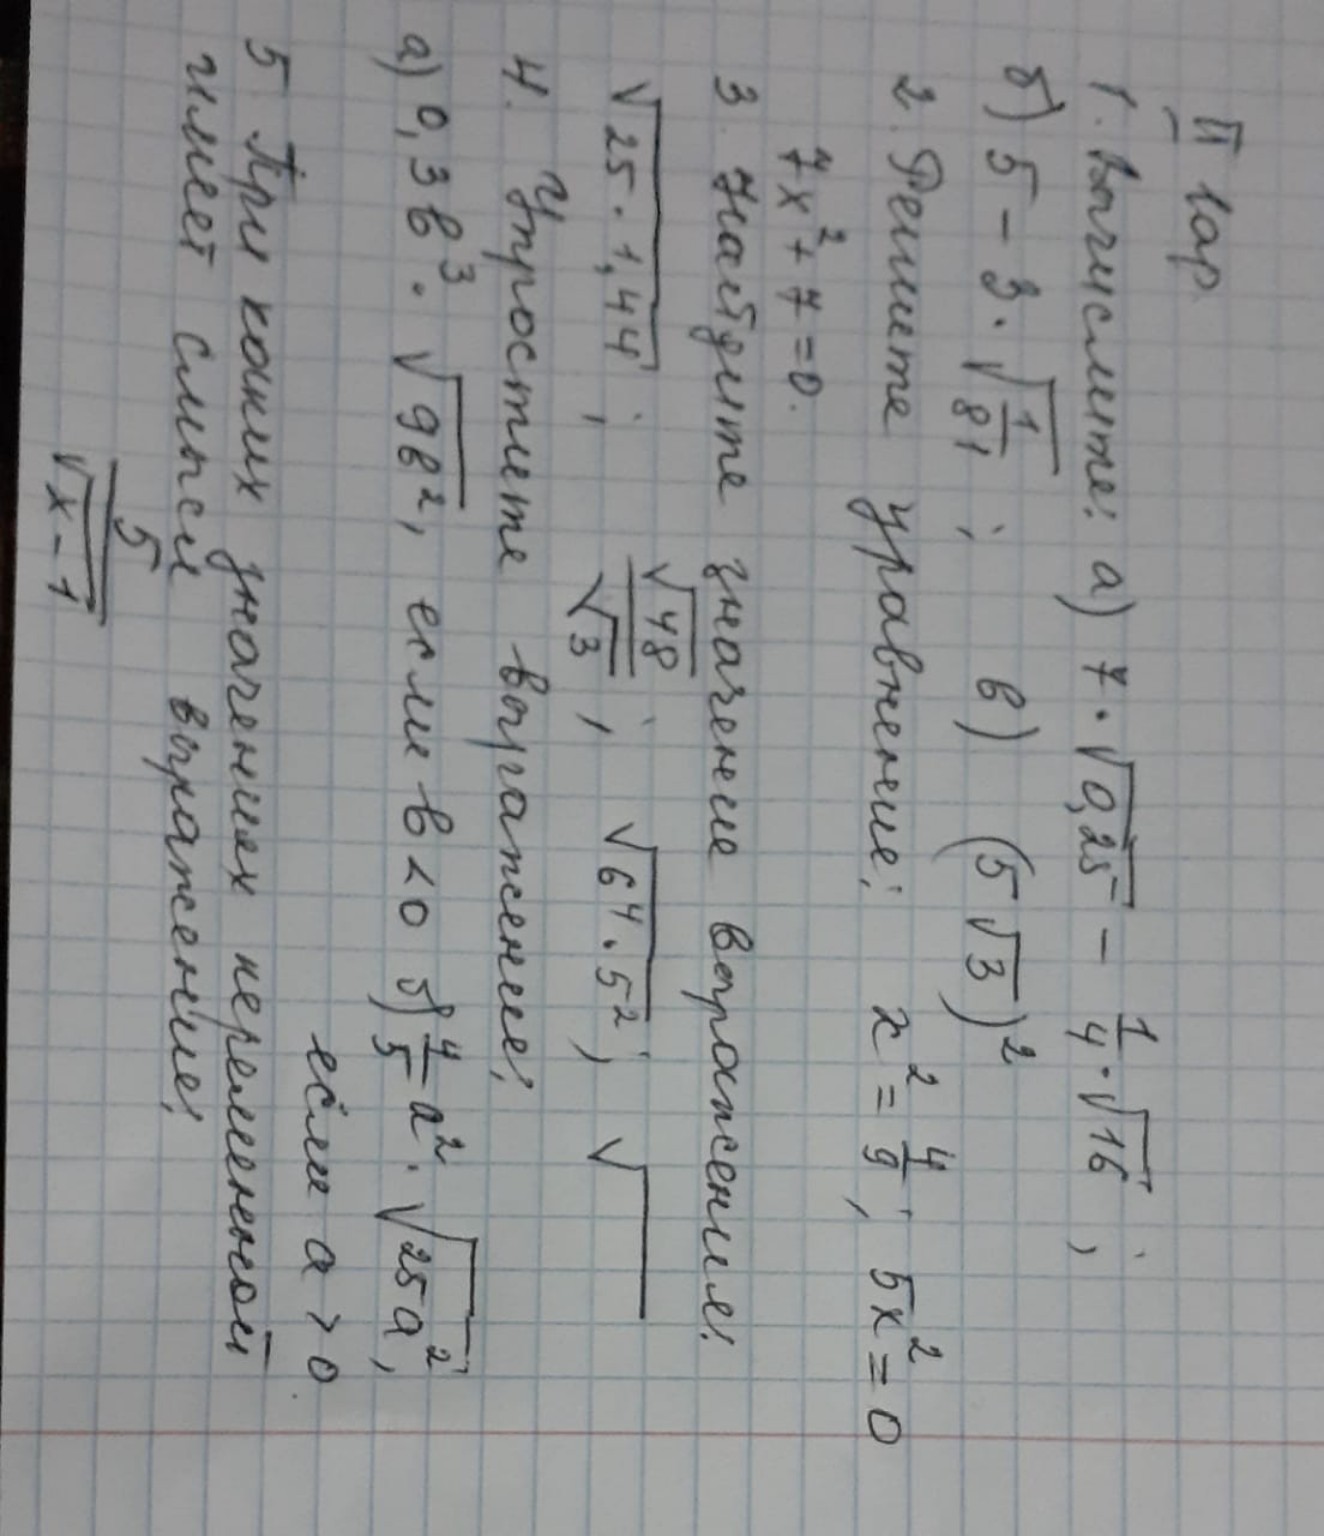 II вар.
1. Вычислите: а) 7·√0,25 − 1/4·√16;
б) 5 − 3·√(1/81); в) (5√3)²
2. Решите уравнение: x² = 4/9; 5x² = 0
7x² + 7 = 0.
3. Найдите значение выражения:
√(25·1,44); √48/√3; √(6⁴·5²); √
4. Упростите выражение:
а) 0,3b³·√(9b²), если b < 0 б) 4/5 a²·√(25a²),
если a > 0.
5 При каких значениях переменной
имеет смысл выражение:
5/√(x−1)